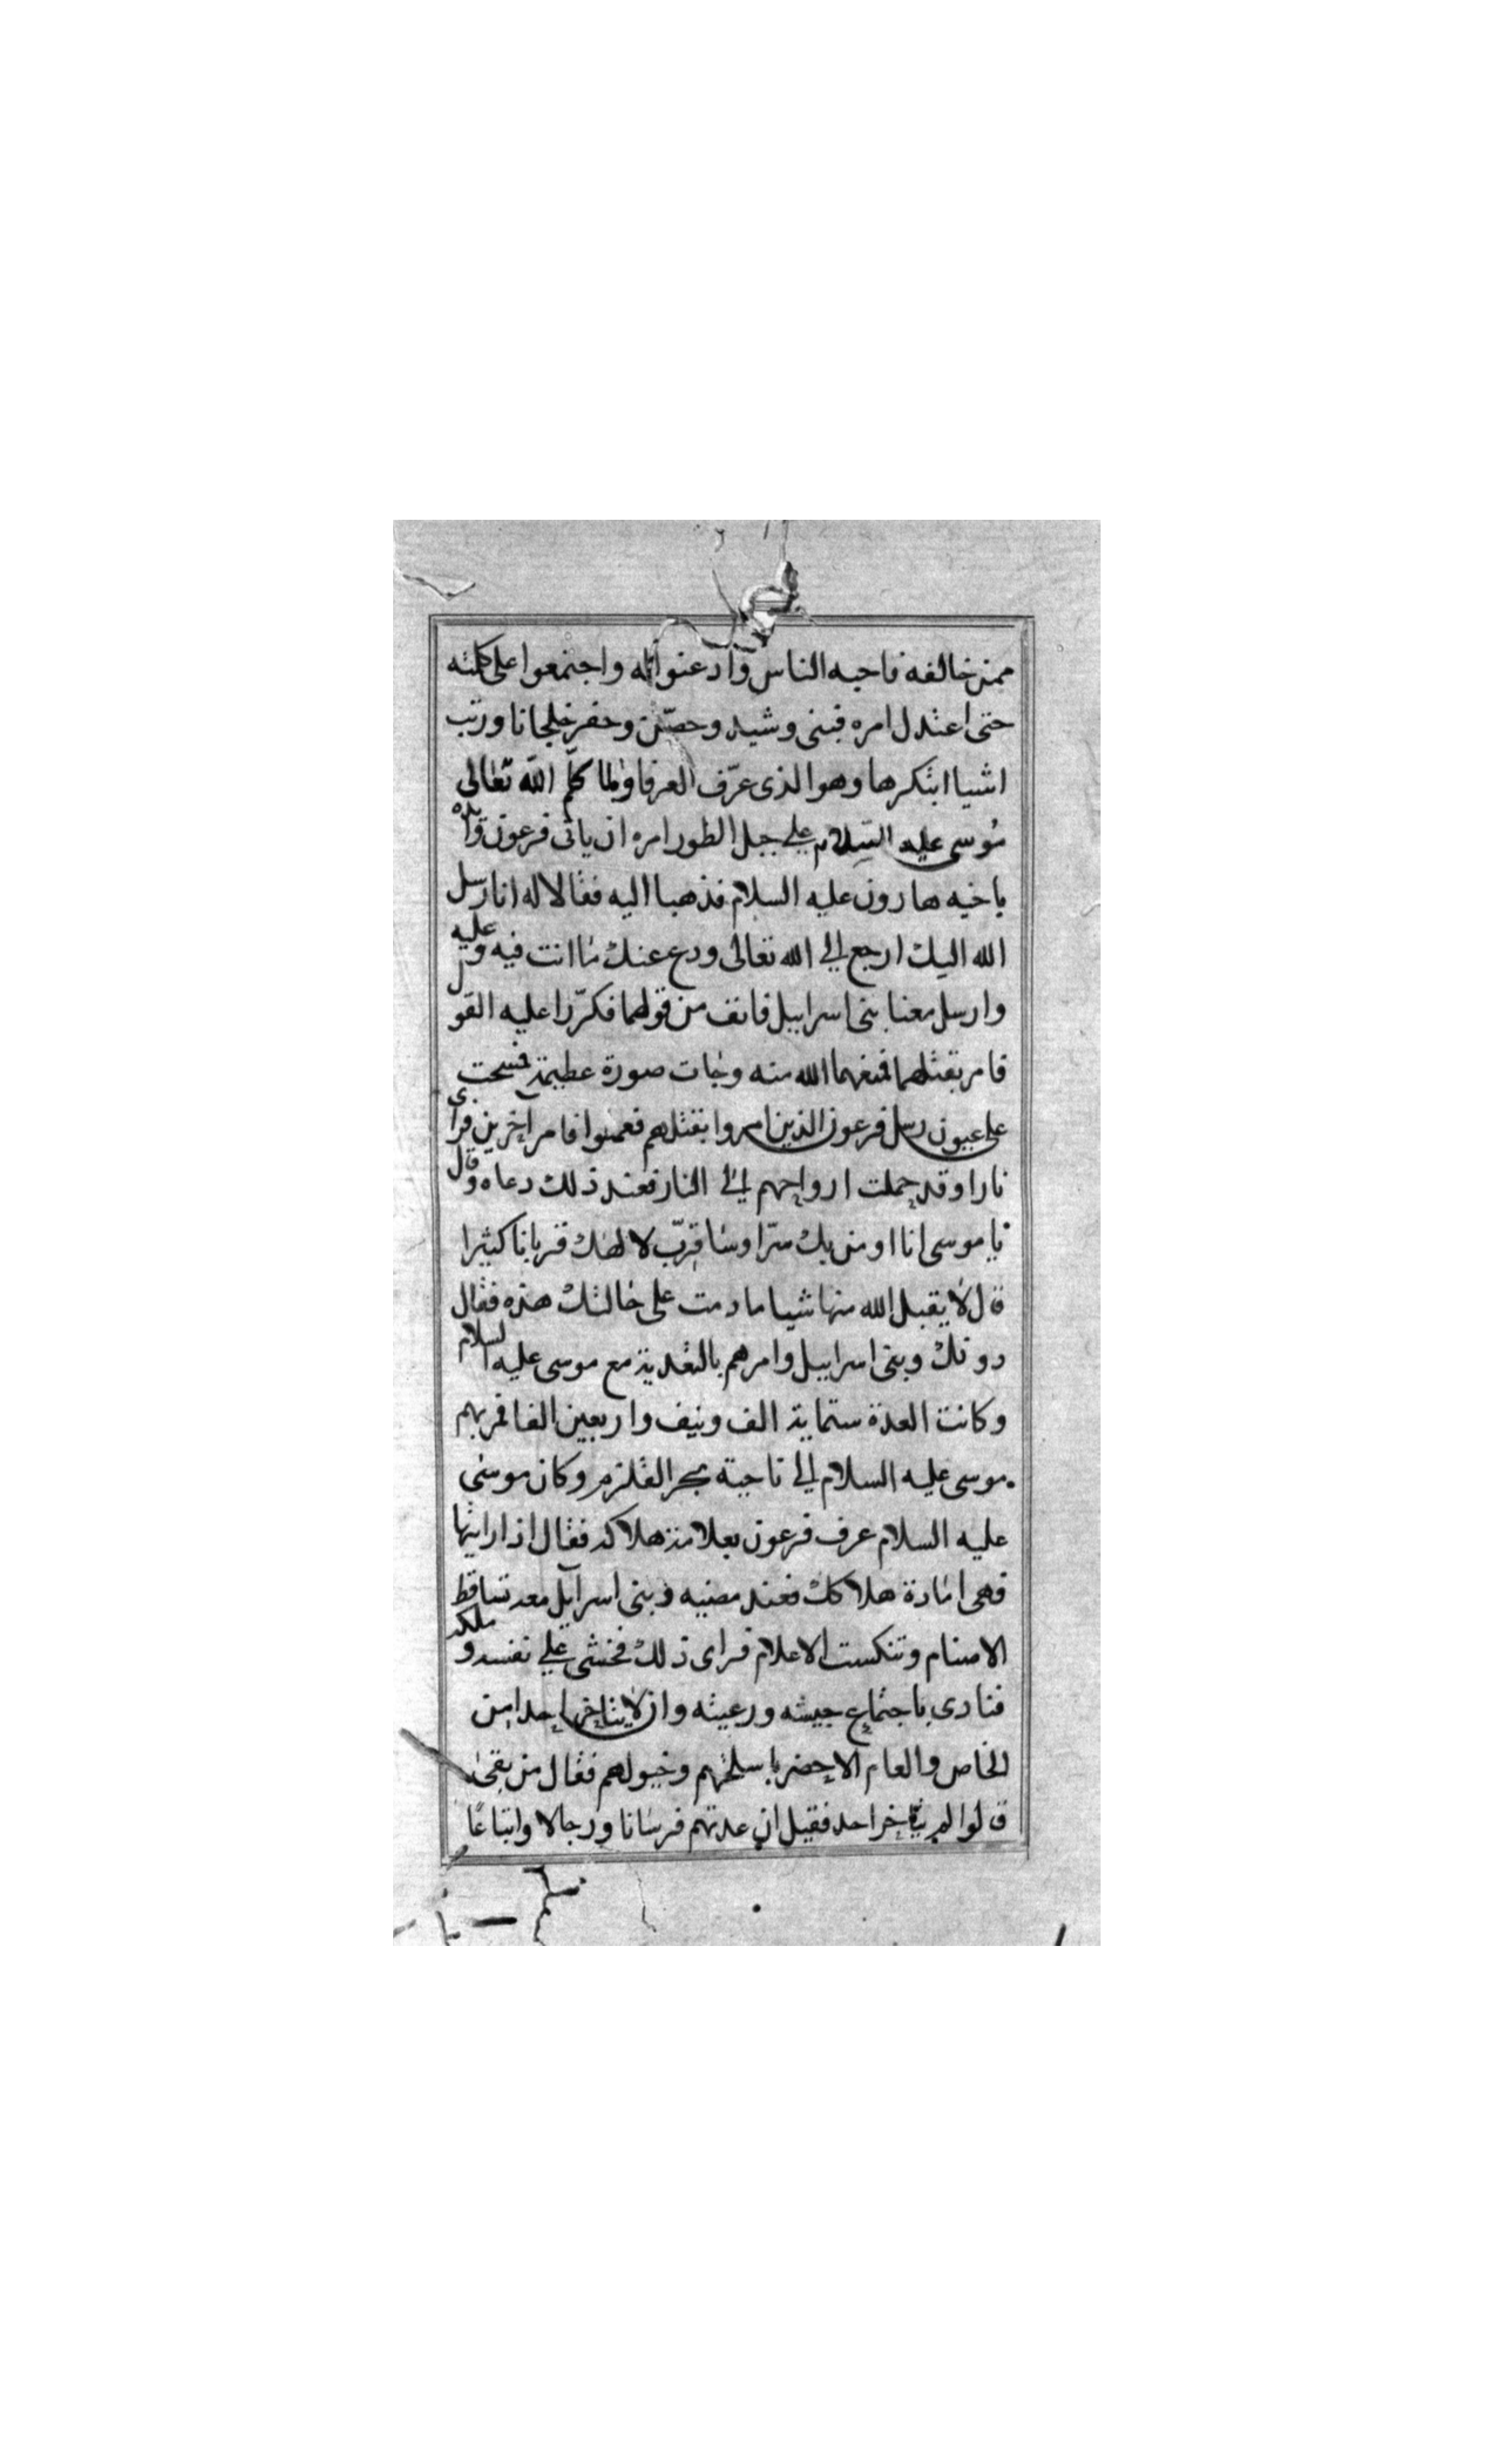 ممن خالفه فاحبه الناس وادعنوا له واجتمعوا على كلمته
حتى اعتدل امره فبنى وشيد وحصّن وحفر خلجانا ورتب
اشيا ابتكرها وهو الذى عرّف العرفا ولما كلّم الله تعالى
موسى عليه السلام على جبل الطور امره ان ياتى فرعون وايده
باخيه هارون عليه السلام فذهبا اليه فقالا له انا رسل
الله اليك ارجع الى الله تعالى ودع عنك ما انت فيه وعليه
وارسل معنا بنى اسراييل فانف من قولهما فكرّرا عليه القول
فامر بقتلهما فمنعهما الله منه وجات صورة عظيمة فمسحت
على عيون رسل فرعون الذين امروا بقتلهم فعموا فامر اخرين فراى
نارا وقد حملت ارواحهم الى النار فعند ذلك دعاه وقال
يا موسى انا اومن بك سرّا وساقرّب لالهك قربانا كثيرا
قال لا يقبل الله منها شيا ما دمت على حالتك هذه فقال
دونك وبنى اسراييل وامرهم بالتعدية مع موسى عليه السلام
وكانت العدة ستماية الف ونيف واربعين الفا فمر بهم
موسى عليه السلام الى ناحية بحر القلزم وكان موسى
عليه السلام عرف فرعون بعلامة هلاكه فقال اذا رايتها
فهى امارة هلاكك فعند مضيه وبنى اسرايل معه تساقط
الاصنام وتنكست الاعلام فراى ذلك فخشى على نفسه وملكه
فنادى باجتماع جيشه ورعيته وان لا يتاخر احدا من
الخاص والعام الا حضر باسلحتهم وخيولهم فقال من بقى
قالوا لم يتاخر احد فقيل ان عدتهم فرسانا ورجالا واتباعًا